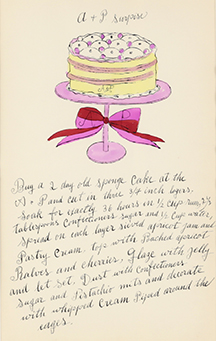 A + P Surprise
Buy a 2 day old sponge cake at the
A + P and cut in three 3/4 inch layers.
Soak for exactly 36 hours in 1/2 cup rum, 2 1/2
Tablespoons Confectioners sugar and 1/2 Cup water
Spread on each layer sieved apricot jam and
Pastry Cream. Top with Poached apricot
Halves and cherries. Glaze with Jelly
and let set. Dust with Confectioners
sugar and Pistachio nuts and decorate
with whipped Cream Piped around the
edges.